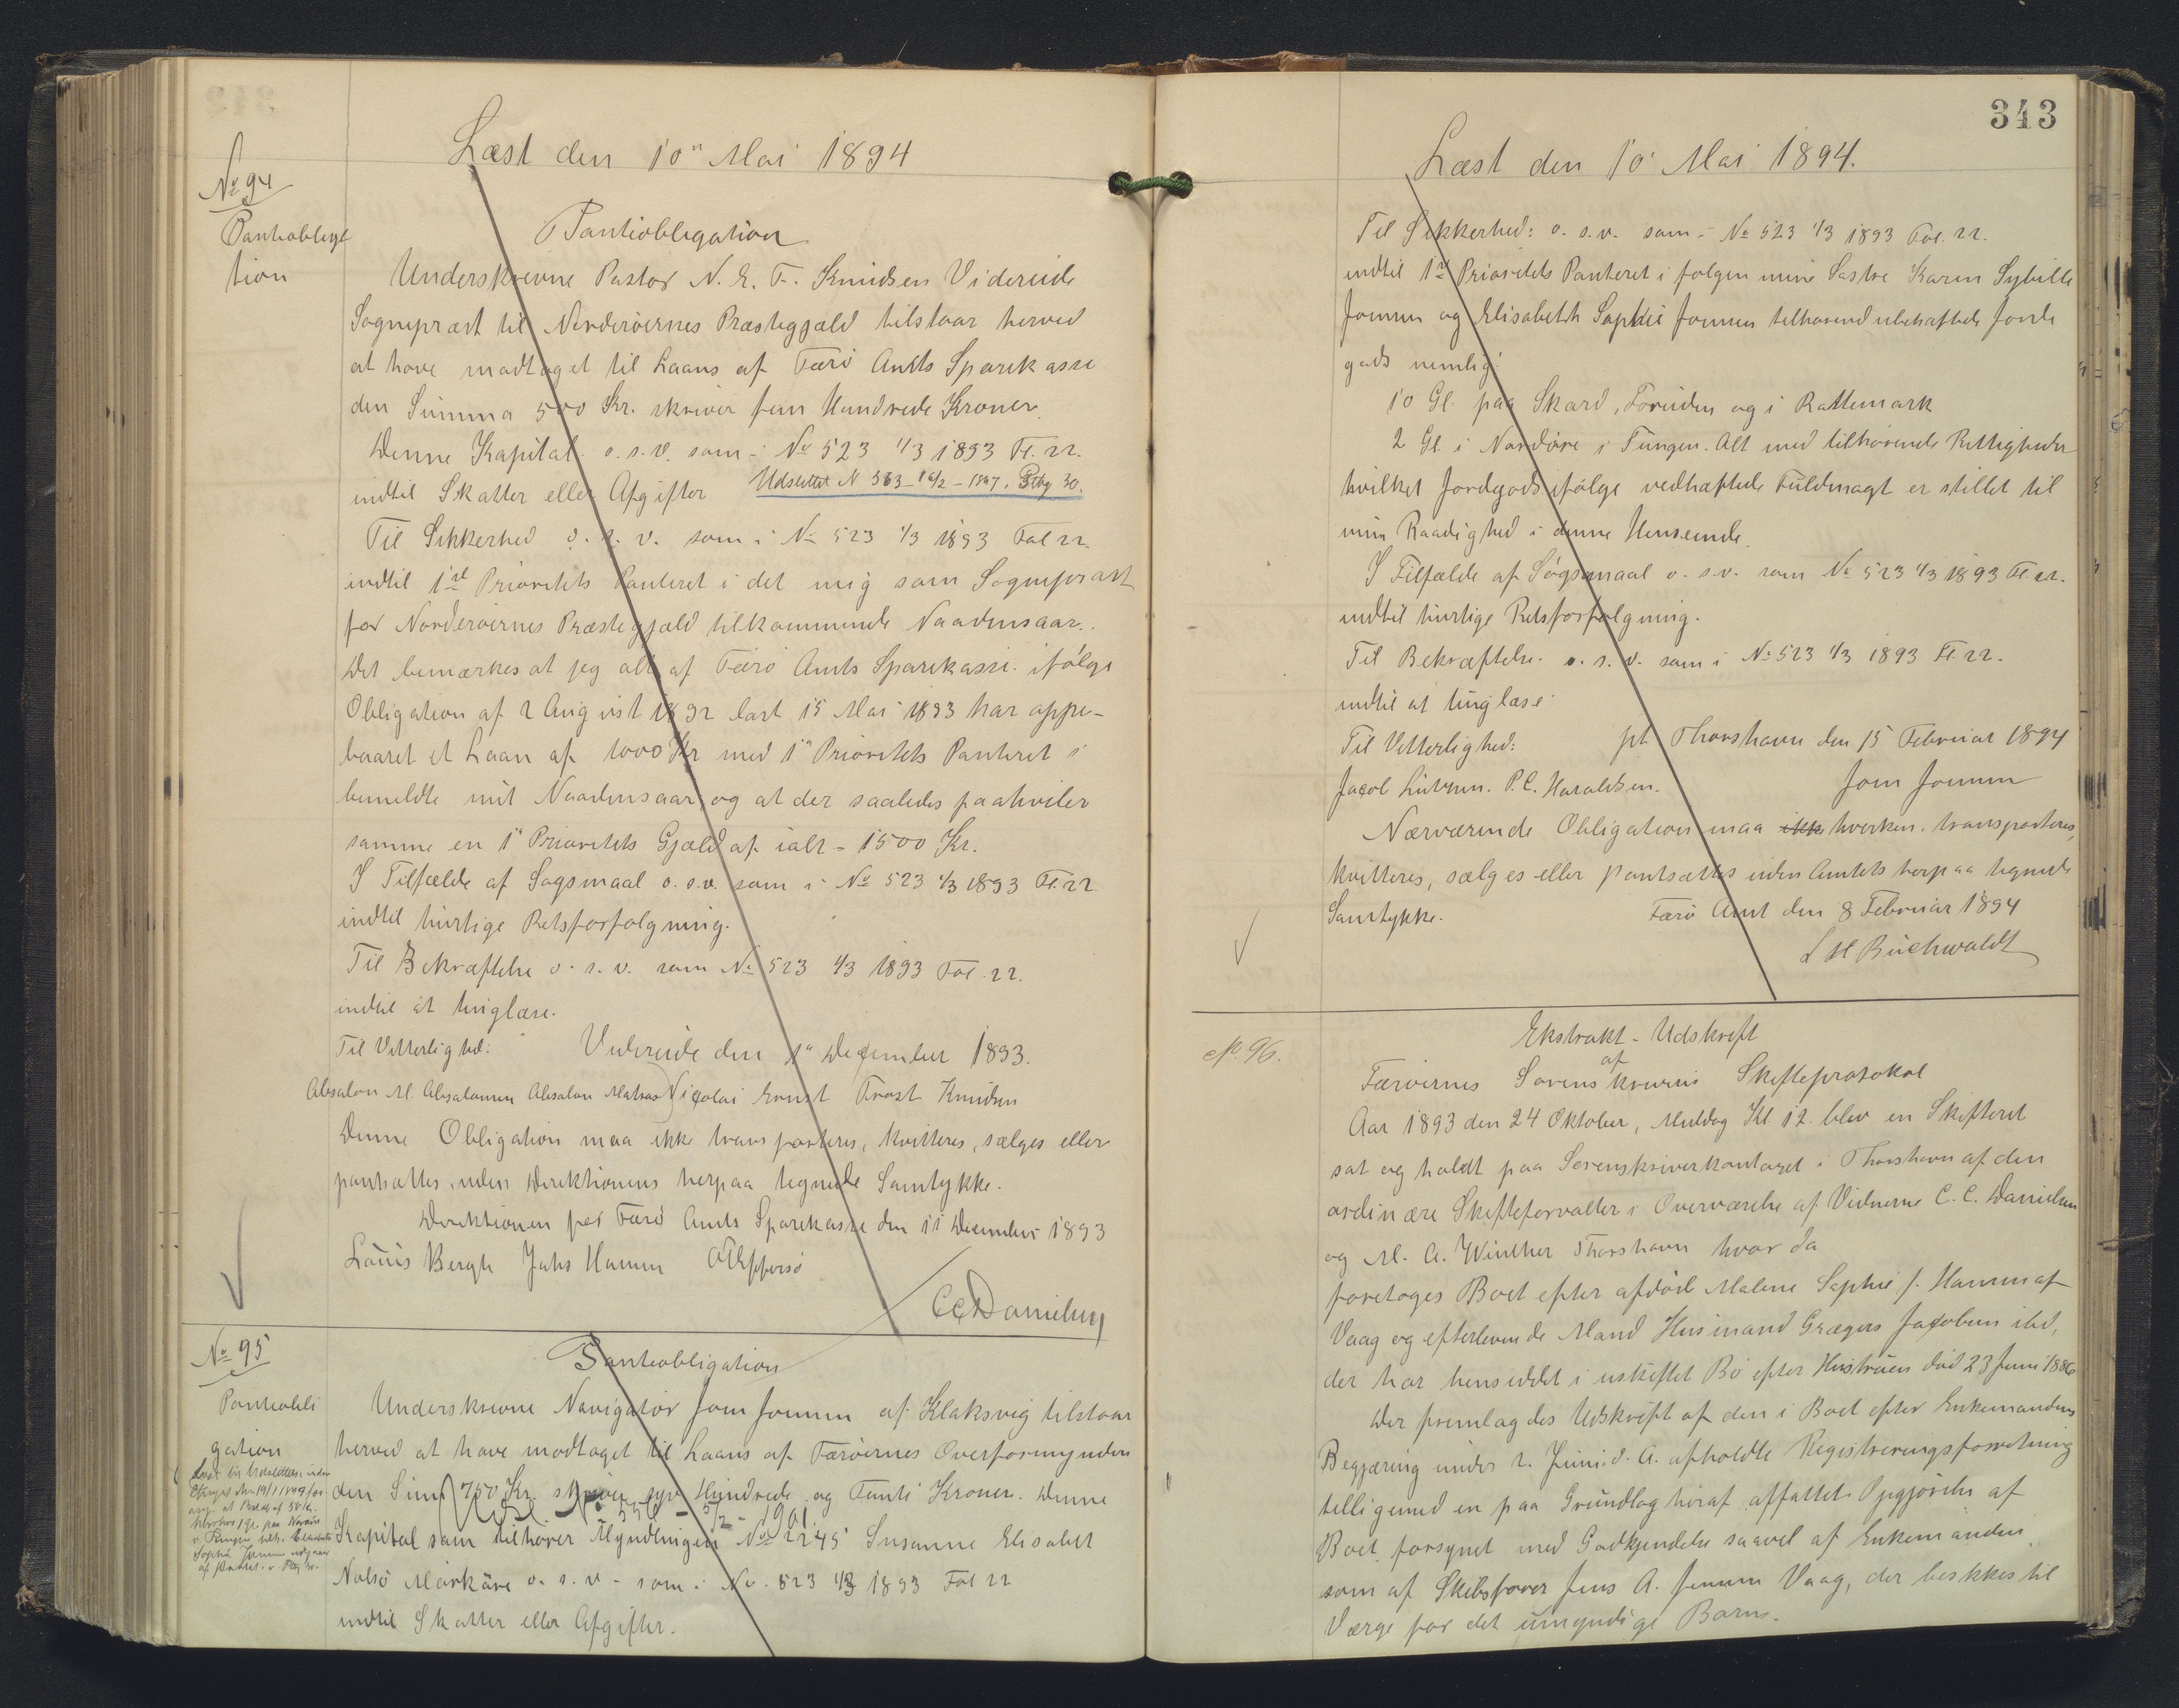 Læst den 10" Mai 1894
No 94
Pantiobliga
tion
Pantiobligation
Underskrevne Pastor N. E. F. Knudsen Videreide
Sognepræst til Norderøernes Præstegjæld tilstaar herved
at have modtaget til Laans af Færø Amts Sparekasse
den Summa 500 Kr. skriver fem Hundrede Kroner.
Denne Kapital o. s. v. som i No 523 1/3 1893 Fl. 22.
indtil Skatter eller Afgifter Udslettet N 563 - 16/2 - 1897. Ptbg 30.
Til Sikkerhed o. s. v. som i No 523 1/3 1893 Fol 22.
indtil 1ste Prioritets Panteret i det mig som Sognepræst
for Norderøernes Præstegjæld tilkommende Naadensaar.
Det bemærkes at jeg alt af Færø Amts Sparekasse ifølge
Obligation af 2 August 1892 læst 15 Mai 1893 har oppe-
baaret et Laan af 1000 Kr med 1" Prioritets Panteret i
bemeldte mit Naadensaar, og at der saaledes paahviler
samme en 1" Prioritets Gjæld af ialt - 1500 Kr.
I Tilfælde af Søgsmaal o. s. v. som i No 523 1/3 1893 Fl. 22
indtil hurtige Retsforfølgning.
Til Bekræftelse o. s. v. som No 523 1/3 1893 Fol. 22.
indtil at tinglæse.
Til Vitterlighed: Videreide den 1" December 1893.
Absalon M. Absalonsen Absalon Matras Nicolai Ernst Frost Knudsen
Denne Obligation maa ikke transporteres, kvitteres, sælges eller
pantsættes uden Direktionens herpaa tegnede Samtykke.
Direktionen for Færø Amts Sparekasse den 11 December 1893
Louis Bergh Johs Hamm O Effersø
CCDanielsen
No 95
Pantiobli
gation
Pantiobligation
Underskrevne Navigatør Joen Joensen af Klaksvig tilstaar
herved at have modtaget til Laans af Færøernes Overformynderi
den Sum 750 Kr. skriver syv Hundrede og Femti Kroner. Denne
Udsl. No 556 - 5/2 - 1901.
Kapital som tilhører Myndlingen No 2245 Susanne Elisabet
Nolsø Mørkøre o. s. v - som i No. 523 1/3 1893 Fol 22
indtil Skatter eller Afgifter.
343
Læst den 10' Mai 1894.
Til Sikkerhed: o. s. v. som i No 523 1/3 1893 Fol. 22.
indtil 1ste Prioritets Panteret i følgen mine Søstre Karen Sybille
Joensen og Elisabeth Sophie Joensen tilhørend ubehæftede Jorde
gods nemlig:
10 Gl. paa Skard, Foruden og i Rattemark
2 Gl. i Nordøre i Tungen. Alt med tilhørende Rettigheder
hvilket Jordgods ifølge vedhæftede Fuldmagt er stillet til
min Raadighed i denne Henseende.
I Tilfælde af Søgsmaal o. s. v. som No 523 1/3 1893 Fl 22.
indtil hurtige Retsforfølgning.
Til Bekræftelse o. s. v. som i No 523 1/3 1893 Fl. 22.
indtil at tinglæse
Til Vitterlighed: pt Thorshavn den 15 Februar 1894
Jacob Lützen. P. C. Haraldsen. Joen Joensen
Nærværende Obligation maa ikke hverken transporteres,
kvitteres, sælges eller pantsættes uden Amtets herpaa tegnede
Samtykke. Færø Amt den 8 Februar 1894
L H Buchwaldt
No 96.
Ekstrakt - Udskrift
af
Færøernes Sorenskriveris Skifteprotokol
Aar 1893 den 24 Oktober, Middag Kl 12 blev en Skifteret
sat og holdt paa Sorenskriverkontoret i Thorshavn af den
ordinære Skifteforvalter i Overværelse af Vidnerne C. C. Danielsen
og M. A. Winther Thorshavn hvor da
foretoges Boet efter afdøde Malene Sophie f. Hammer af
Vaag og efterlevende Mand Husmand Grægers Jacobsen ibd,
der har hensiddet i uskiftet Bo efter Hustruen død 23 Juni 1886
Der fremlagdes Udskrift af den i Boet efter Enkemandens
Begjæring under 2. Juni d. A. afholdte Registreringsforretning
telligemed en paa Grundlag heraf affattet Opgjørelse af
Boet forsynet med Godkjendelse saavel af Enkemanden
som af Skibsfører Jens A. Jensen Vaag, der beskikkes til
Værge for det umyndige Barn.